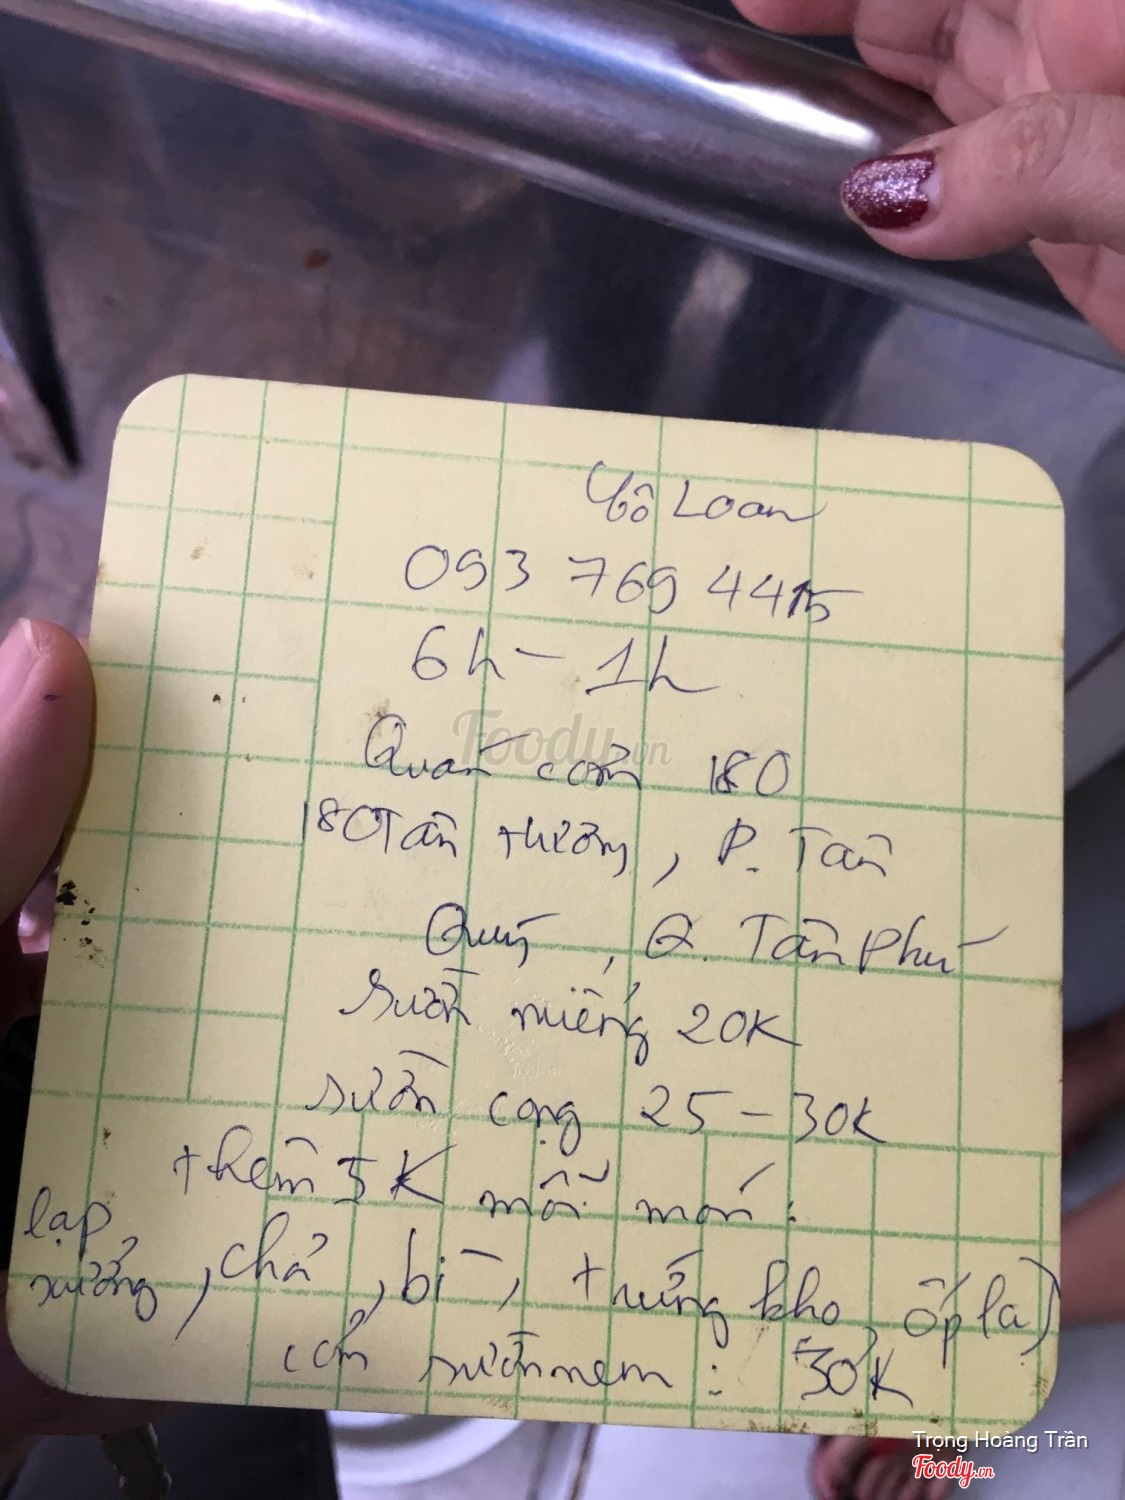 Cô Loan
093 769 4415
6h - 1h
Foody.vn
Quán cơm 180
180 Tân Hương, P. Tân
Quý, Q. Tân Phú
Sườn miếng 20K
sườn cọng 25 - 30K
thêm 5K mỗi món:
lạp
xưởng, chả, bì, trứng kho, ốp la)
cơm sườn nem: 30K
Trọng Hoàng Trần
Foody.vn